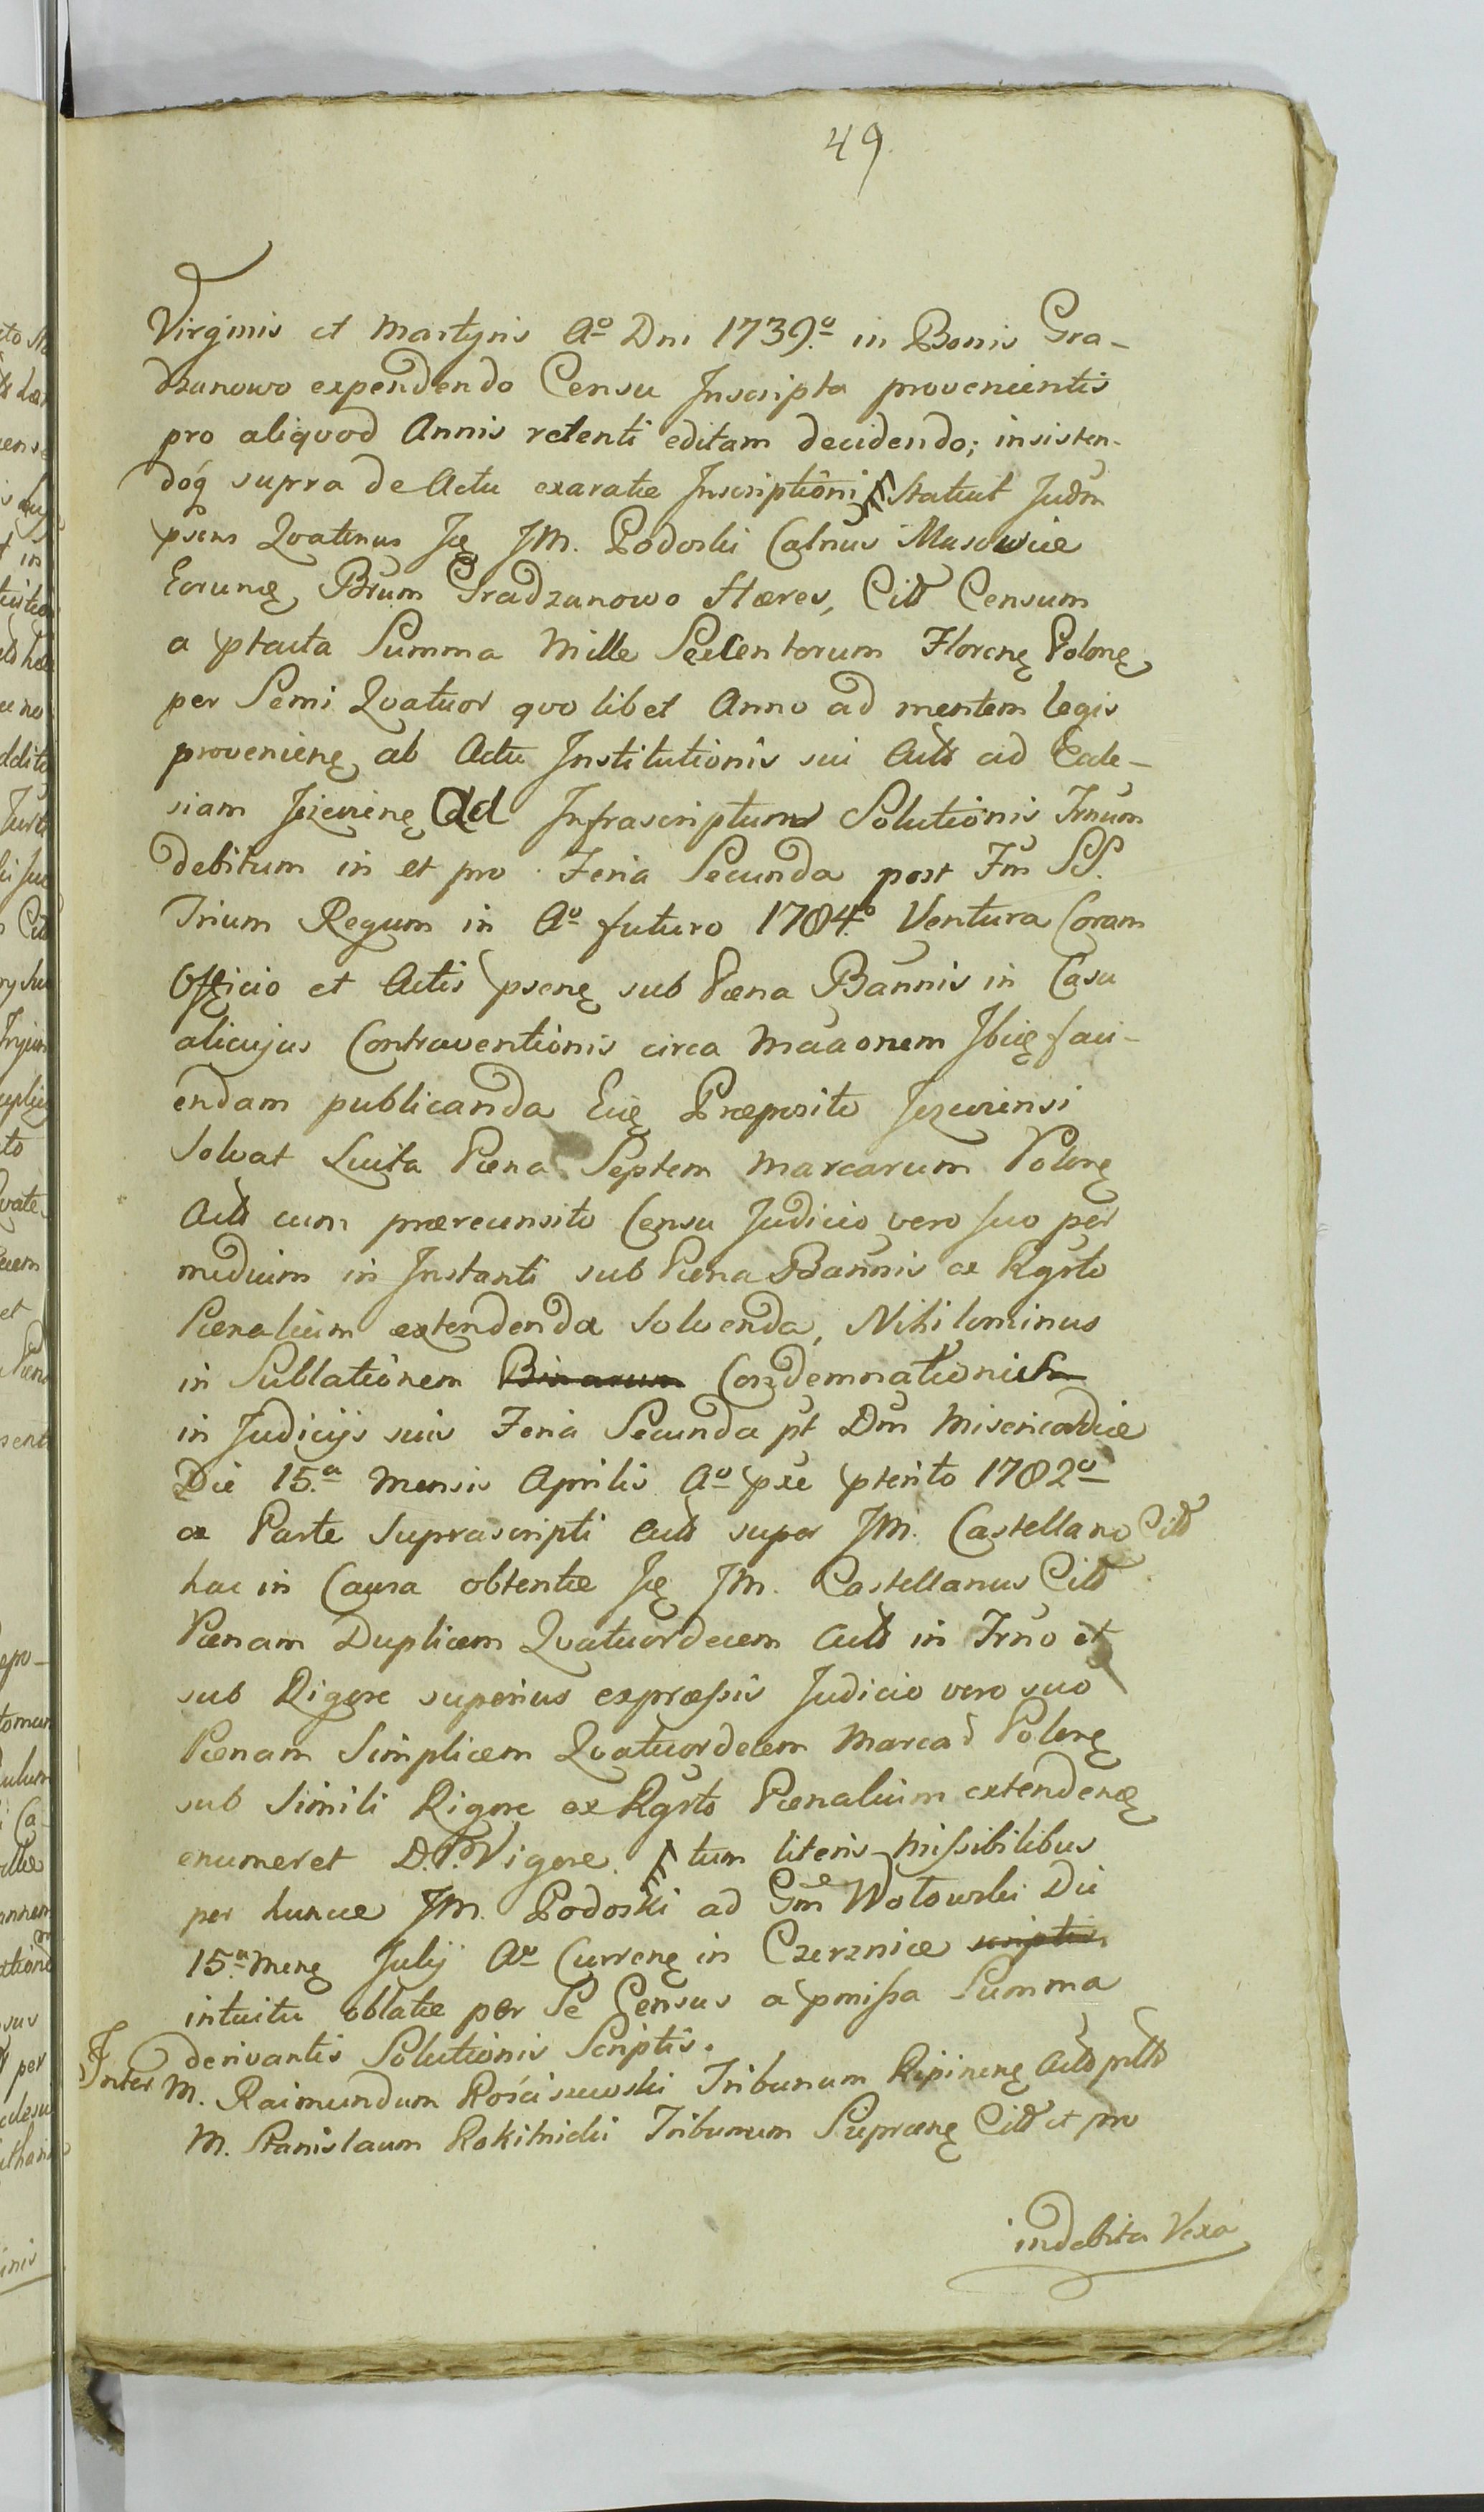 49.
Virginis et Martyris Aº Dni 1739.º in Bonis Gra-
dzanowo expendendo Censu Inscripta provenientis
pro aliqvod Annis retenti editam decidendo; insisten-
doq supra de Actu exaratæ Inscriptioni Statuit Judm
psens Qvatenus Ję JM. Podoski Calnus Masowiæ
Eorunę Brum Gradzanowo Hæres, Citt Censum
a ptacta Summa Mille Sexcentorum Florenę Polonę
per Semi Qvatuor qvo libet Anno ad mentem legis
provenienę ab Actu Institutionis sui Acts ad Eccle-
siam Jezevienę Ad Infrascriptum Solutionis Trnum
debitum in et pro Feria Secunda post Fm SS.
Trium Regum in Aº futuro 1784.º Ventura Coram
Officio et Actis psenę sub Pæna Bannis in Casu
alicujus Contraventionis circa Maaonem Ibię faci-
endam publicanda Eię Præposito Jezeviensi
Solvat Luita Pæna Septem Marcarum Polonę
Acts cum prærecensito Censu Judicio vero suo per
medium in Instanti sub Pæna Bannis ex Rgrto
Pænalium extendenda solvenda, Nihilominus
in Sublationem Binarum Condemnationis
in Judicijs suis Feria Secunda pt Dm Misericordiæ
Die 15.ª Mensis Aprilis Aº pxe pterito 1782º
ex Parte Suprascripti Acts super JM. Castellano Citt
hac in Causa obtentæ Ję JM. Castellanus Citt
Pænam Duplicem Qvatuordecem Acts in Trno et
sub Rigore superius expressis Judicio vero suo
Pænam Simplicem Qvatuordecem Marcas Polonę
sub Simili Rigore ex Rgrto Pænalium extendenę
enumeret D.P. Vigore tum literis missibilibus
per hunce JM. Podoski ad Gm Wołowski Die
15.ª Menę Julij Aº Currenę in Czerznice scriptis
intuitu oblatæ per Se Census a pmissa Summa
derivantis Solutionis Scriptis.
Inter M. Raimundum Rościszewski Tribunum Ripinenę Acts ptts
M. Stanislaum Rokitnicki Tribunum Sieprcenę Citt et pro
indebita Vexa